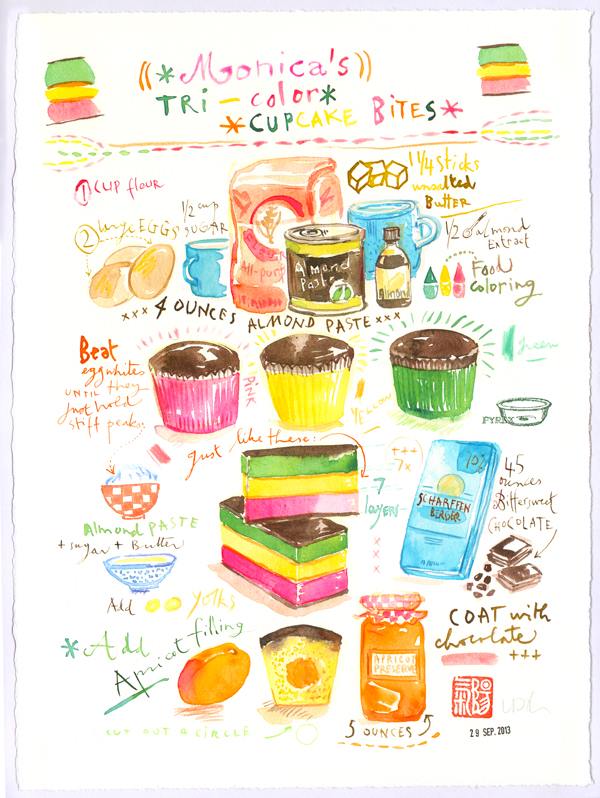 ((*Monica's))
TRI-color*
*CUPCAKE BITES*
1 CUP flour
1 1/4 Sticks
unsalted
Butter
1/2 cup
SUGAR
2 large EGGS
1/2 almond
Extract
All-purp
Almond
Paste
Almond
Food
coloring
××× 4 OUNCES ALMOND PASTE ×××
Beat
eggwhites
UNTIL they
just hold
stiff peaks
PINK
YELLOW
Green
PYREX
just like these:
+++
7×
7
layers
70%
SCHARFFEN
BERGER
45
ounces
Bittersweet
CHOCOLATE
Almond PASTE
+ sugar + Butter
Add yolks
*Add
Apricot filling
APRICOT
PRESERVE
COAT with
chocolate
+++
CUT OUT A CIRCLE
5 OUNCES
29 SEP. 2013